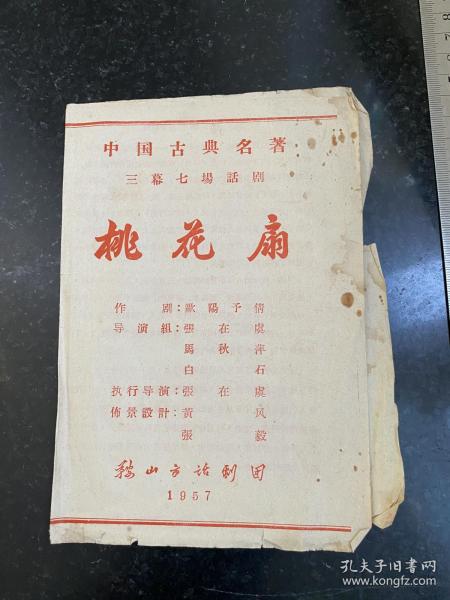 中国古典名著
三幕七場話剧
桃花扇
作剧:歐陽予倩
导演組:張在虞
馬秋萍
白石
执行导演:張在虞
佈景設計:黄风
張毅
鞍山市话剧团
1957
孔夫子旧书网
www.kongfz.com